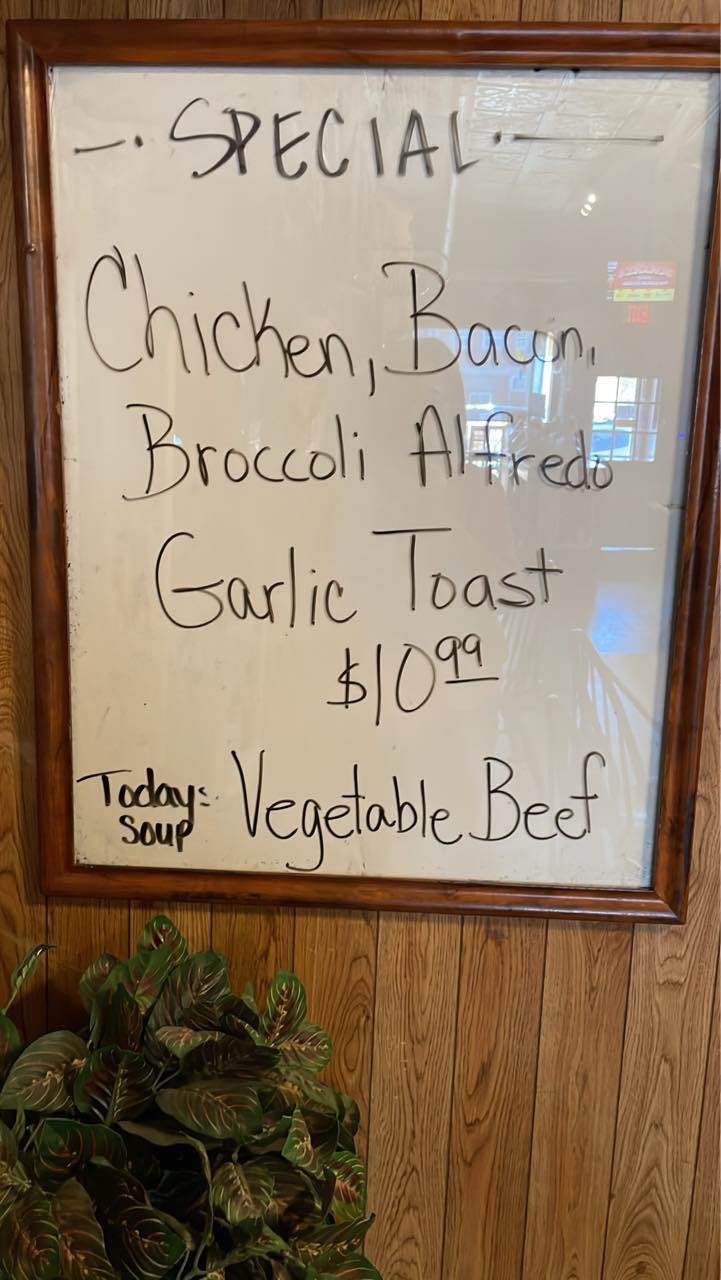 —· SPECIAL ·—
Chicken, Bacon,
Broccoli Alfredo
Garlic Toast
$10.99
Today: Vegetable Beef
Soup